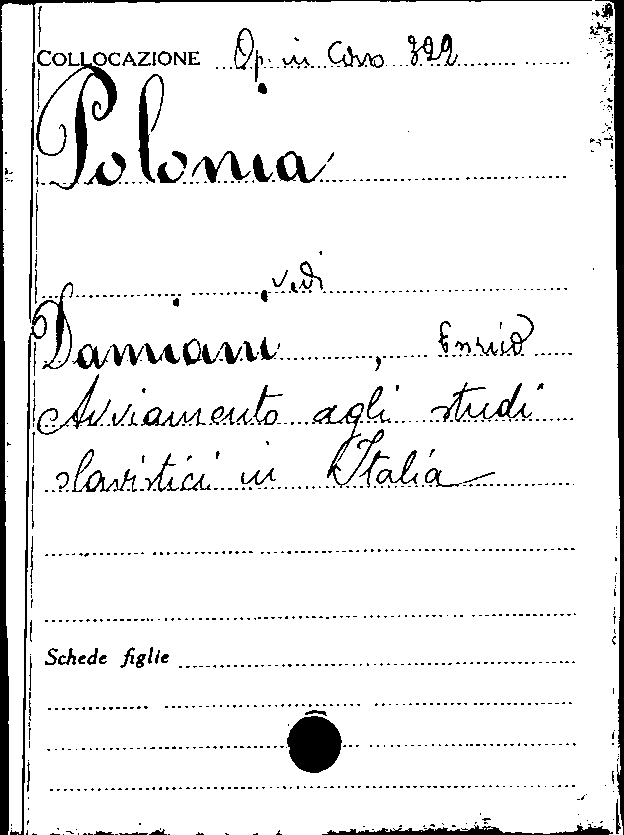 COLLOCAZIONE Op. in Corso 322
Polonia
vedi
Damiani, Enrico
Avviamento agli studi
slavistici in Italia
Schede figlie